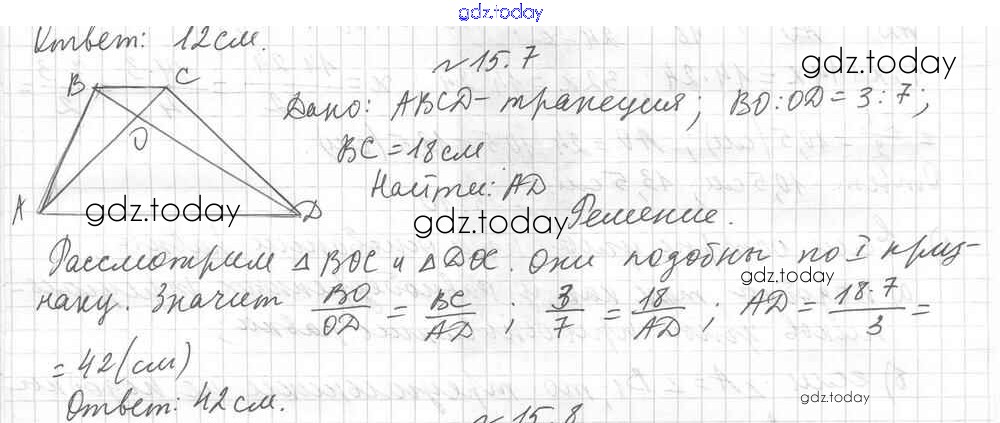 gdz.today
Ответ: 12 см.
№ 15.7
gdz.today
B C
Дано: ABCD - трапеция; BO:OD = 3:7;
O
BC = 18 см
Найти: AD
A D
gdz.today
gdz.today
Решение.
Рассмотрим △ BOC и △ DOC. Они подобны по I приз-
gdz.today
наку. Значит BO/OD = BC/AD ; 3/7 = 18/AD ; AD = 18·7/3 =
= 42 (см)
Ответ: 42 см.
gdz.today
№ 15.8